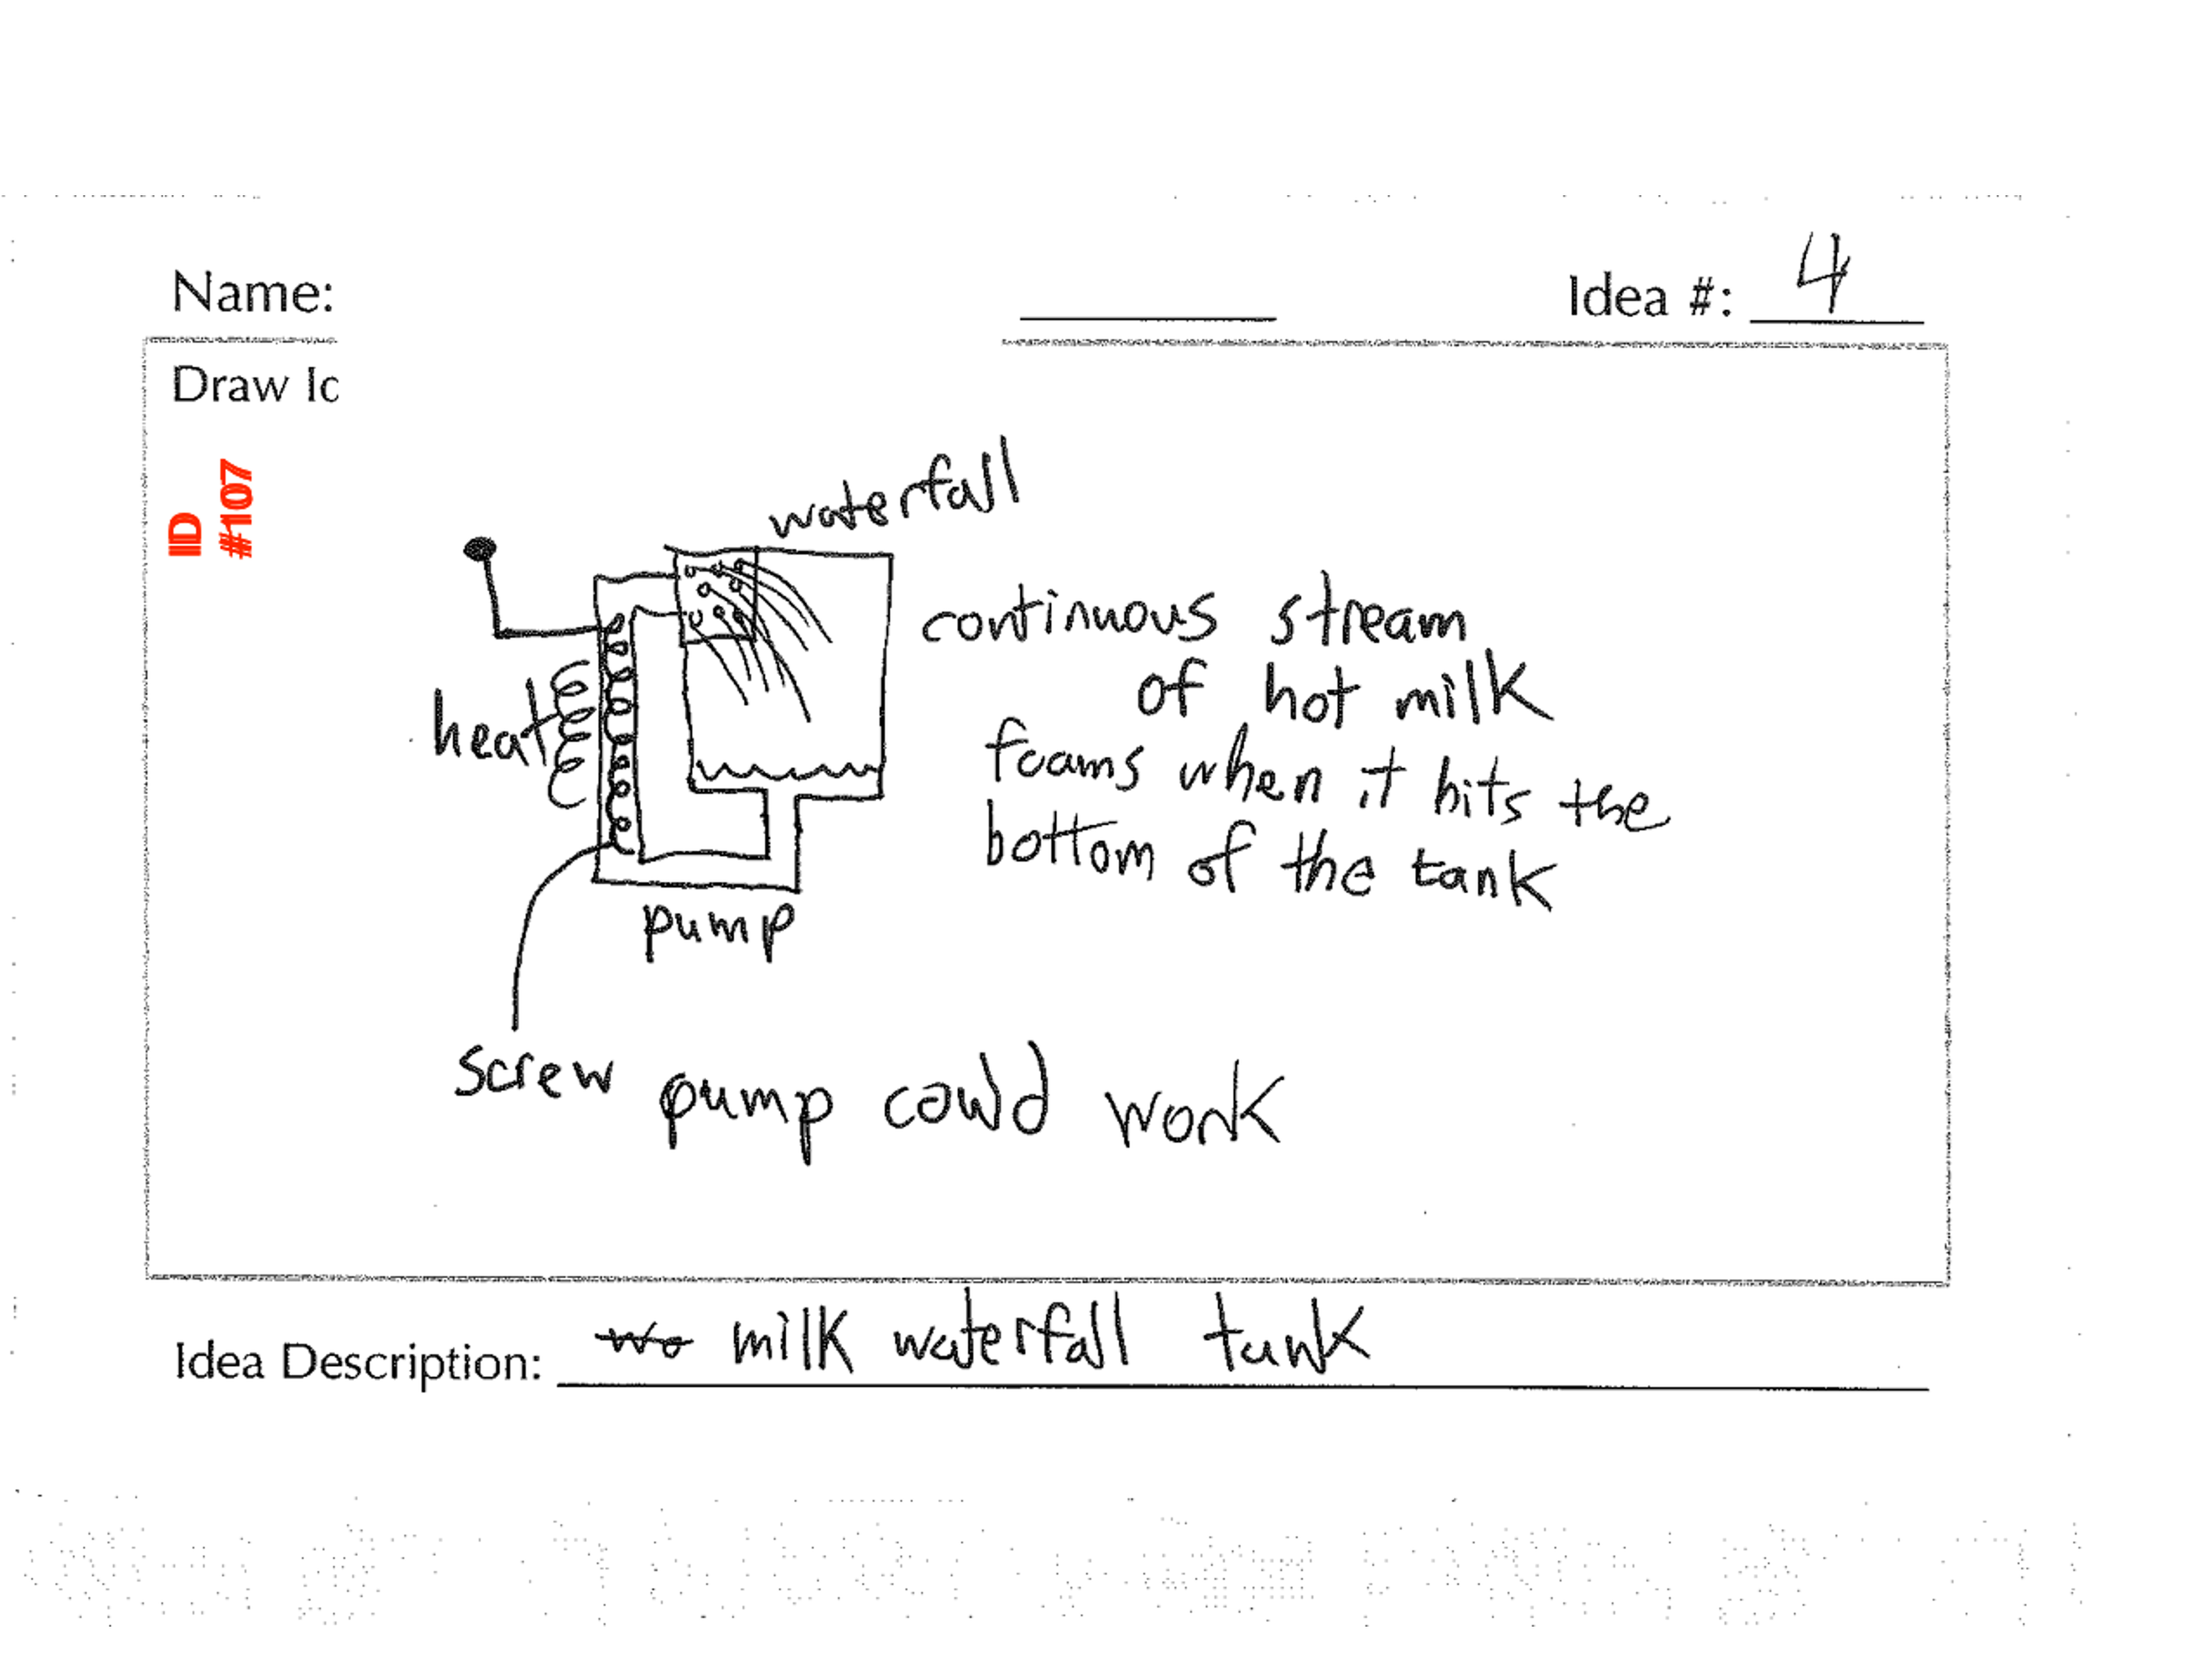 Name:
Idea #: 4
Draw Id
ID
#107
waterfall
heat
continuous stream
of hot milk
foams when it hits the
bottom of the tank
pump
screw pump could work
Idea Description: wo milk waterfall tank